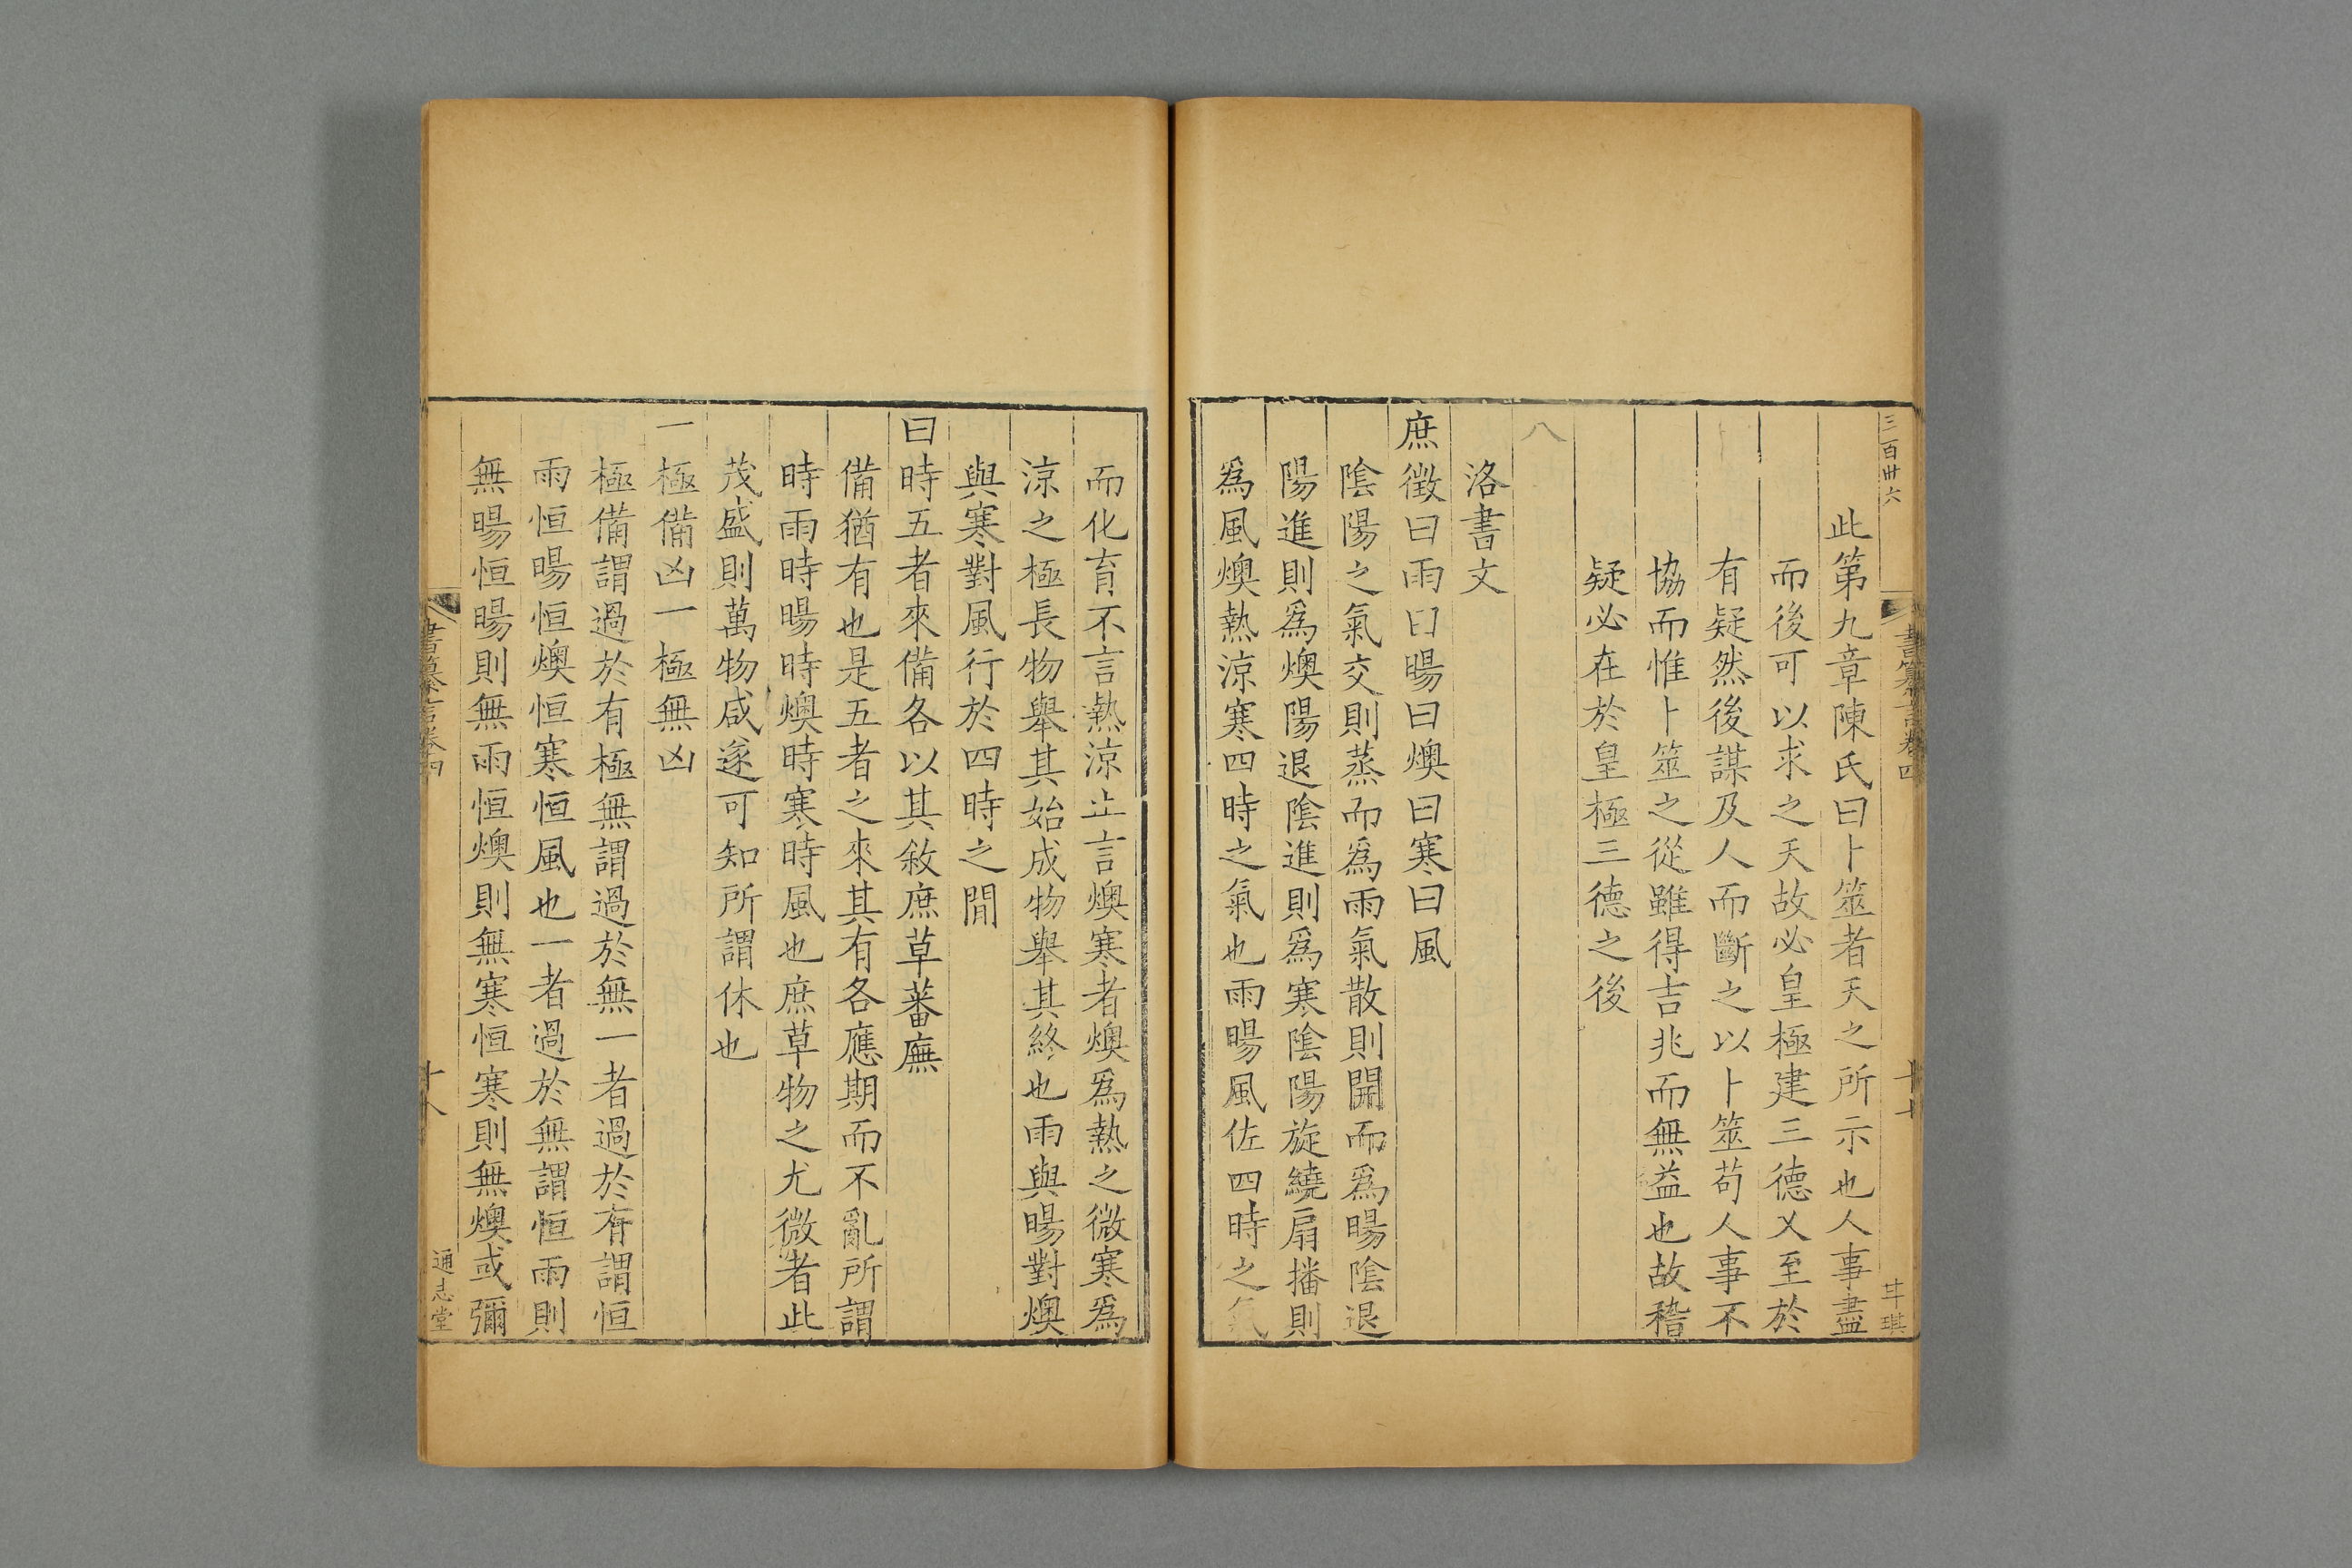 三百卌六
書纂言卷四
十七
琪
此第九章陳氏曰卜筮者天之所示也人事盡
而後可以求之天故必皇極建三德乂至於
有疑然後謀及人而斷之以卜筮苟人事不
協而惟卜筮之從雖得吉兆而無益也故稽
疑必在於皇極三德之後
八
洛書文
庶徵曰雨曰暘曰燠曰寒曰風
陰陽之氣交則蒸而爲雨氣散則開而爲暘陰退
陽進則爲燠陽退陰進則爲寒陰陽旋繞扇播則
爲風燠熱涼寒四時之氣也雨暘風佐四時之氣
而化育不言熱涼止言燠寒者燠爲熱之微寒爲
涼之極長物舉其始成物舉其終也雨與暘對燠
與寒對風行於四時之閒
曰時五者來備各以其敘庶草蕃廡
備猶有也是五者之來其有各應期而不亂所謂
時雨時暘時燠時寒時風也庶草物之尤微者此
茂盛則萬物咸遂可知所謂休也
一極備凶一極無凶
極備謂過於有極無謂過於無一者過於有謂恒
雨恒暘恒燠恒寒恒風也一者過於無謂恒雨則
無暘恒暘則無雨恒燠則無寒恒寒則無燠或彌
書纂言卷四
十八
通志堂